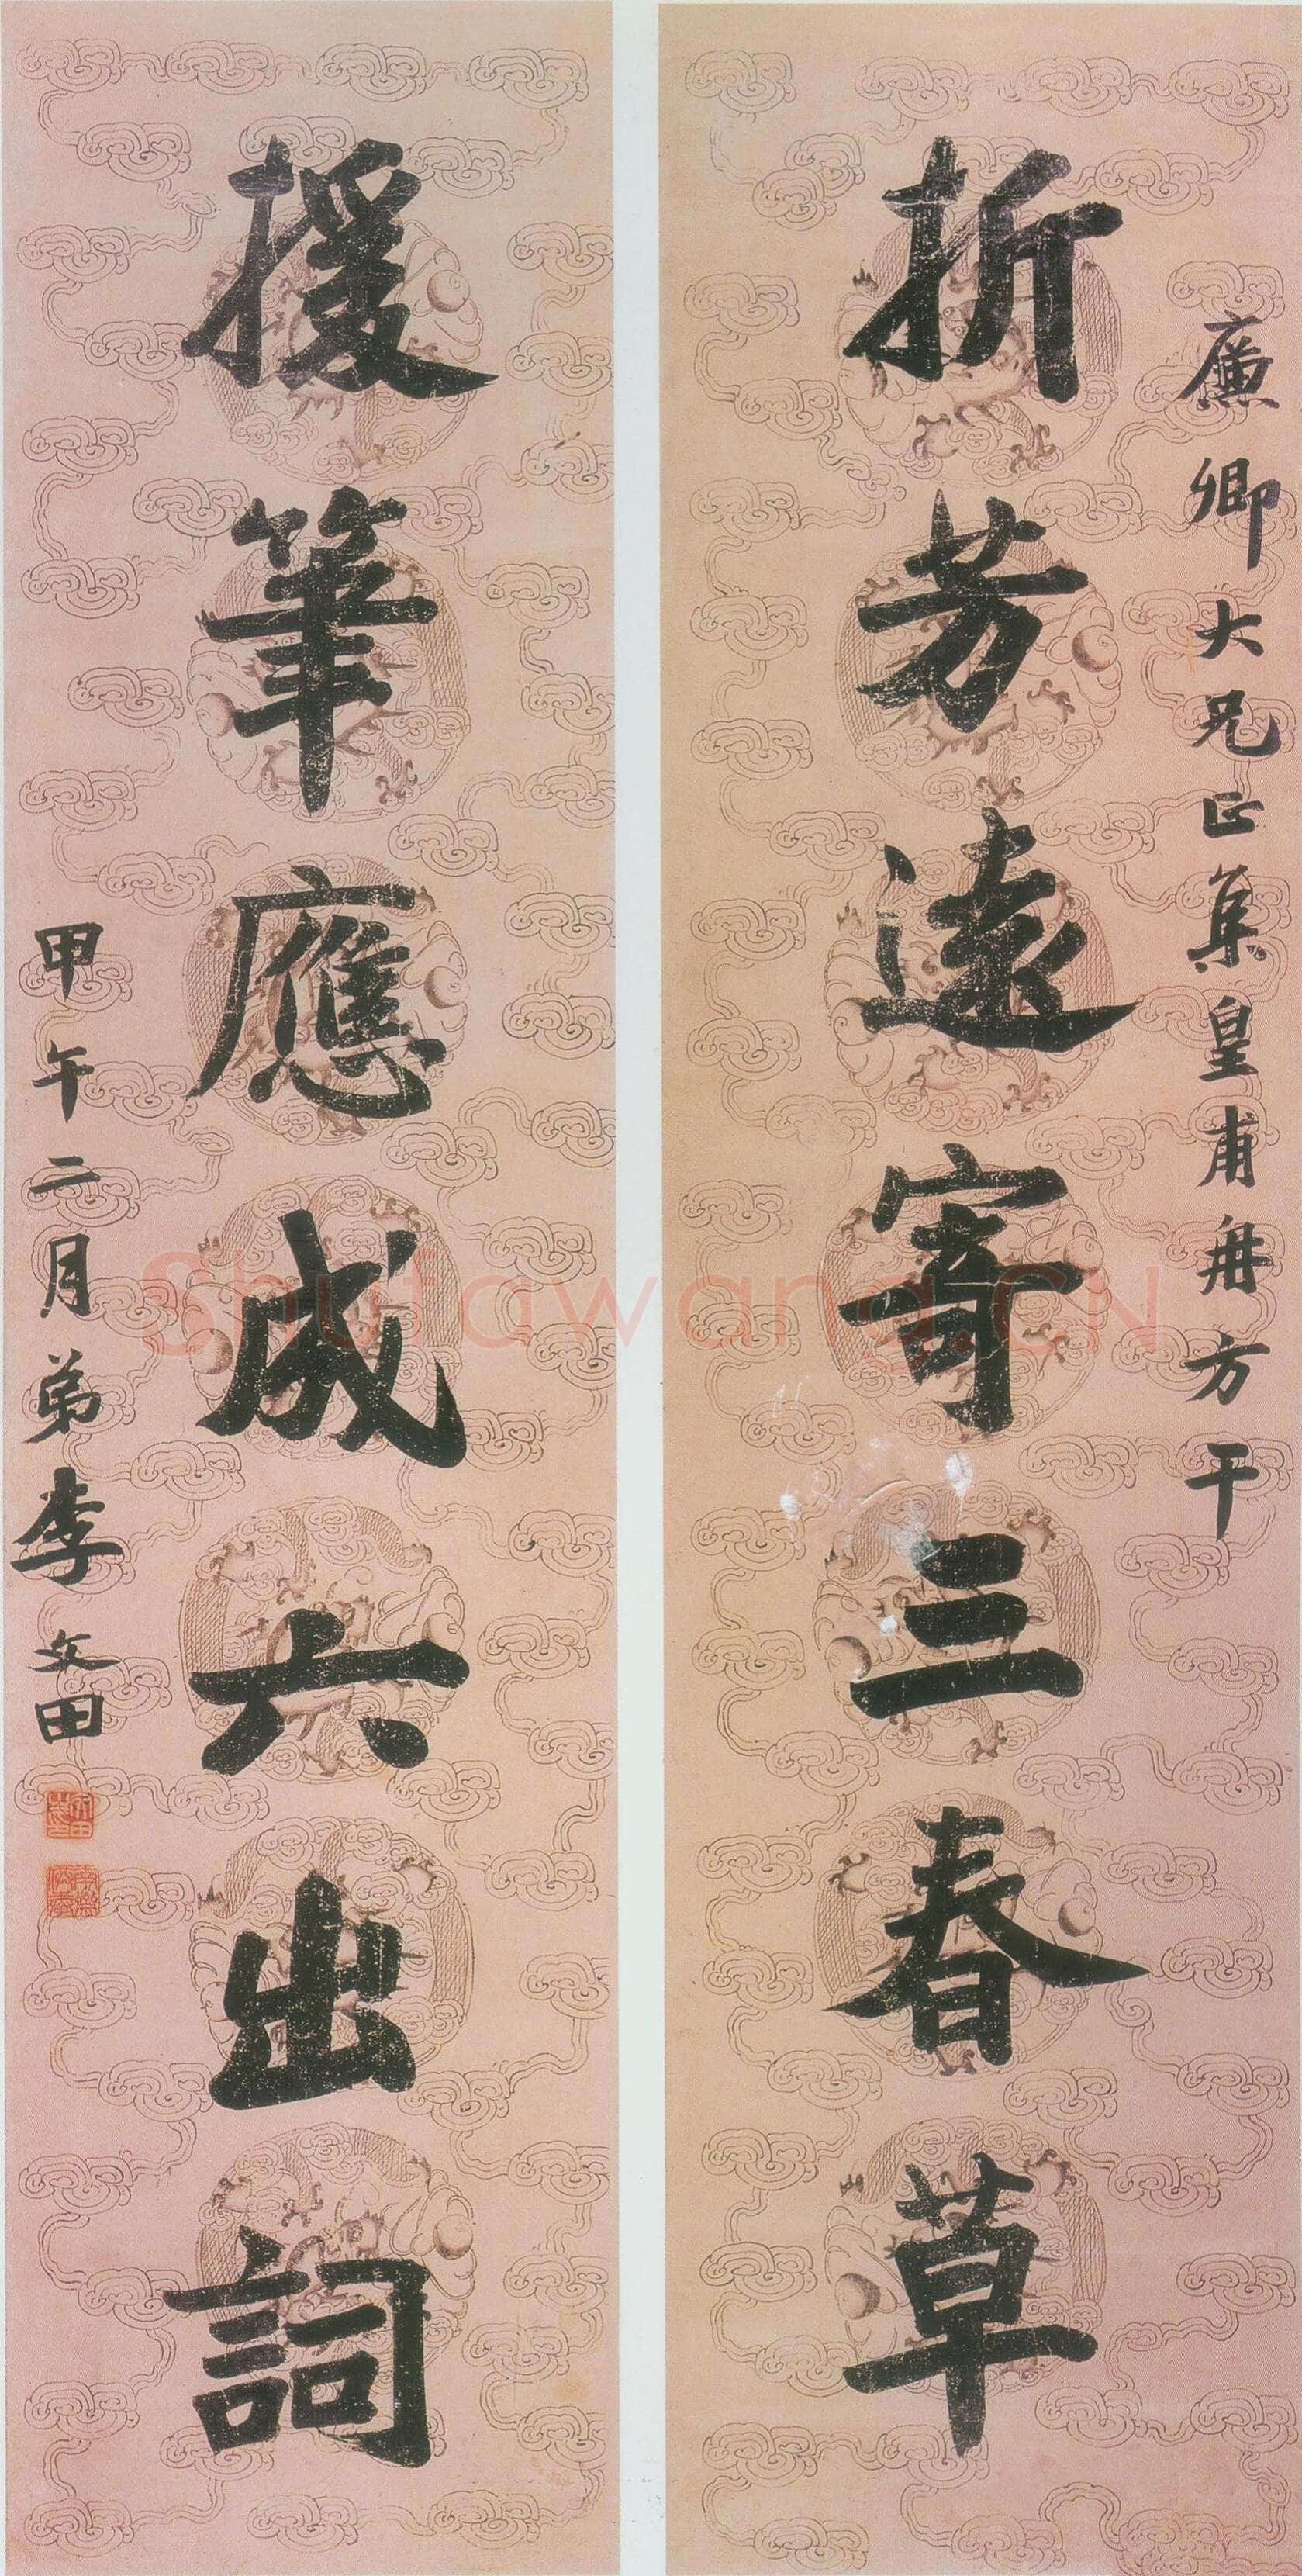 廉卿大兄正集皇甫冉方干
折芳遠寄三春草
援筆應成六出詞
甲午二月弟李文田
Shufawang.CN